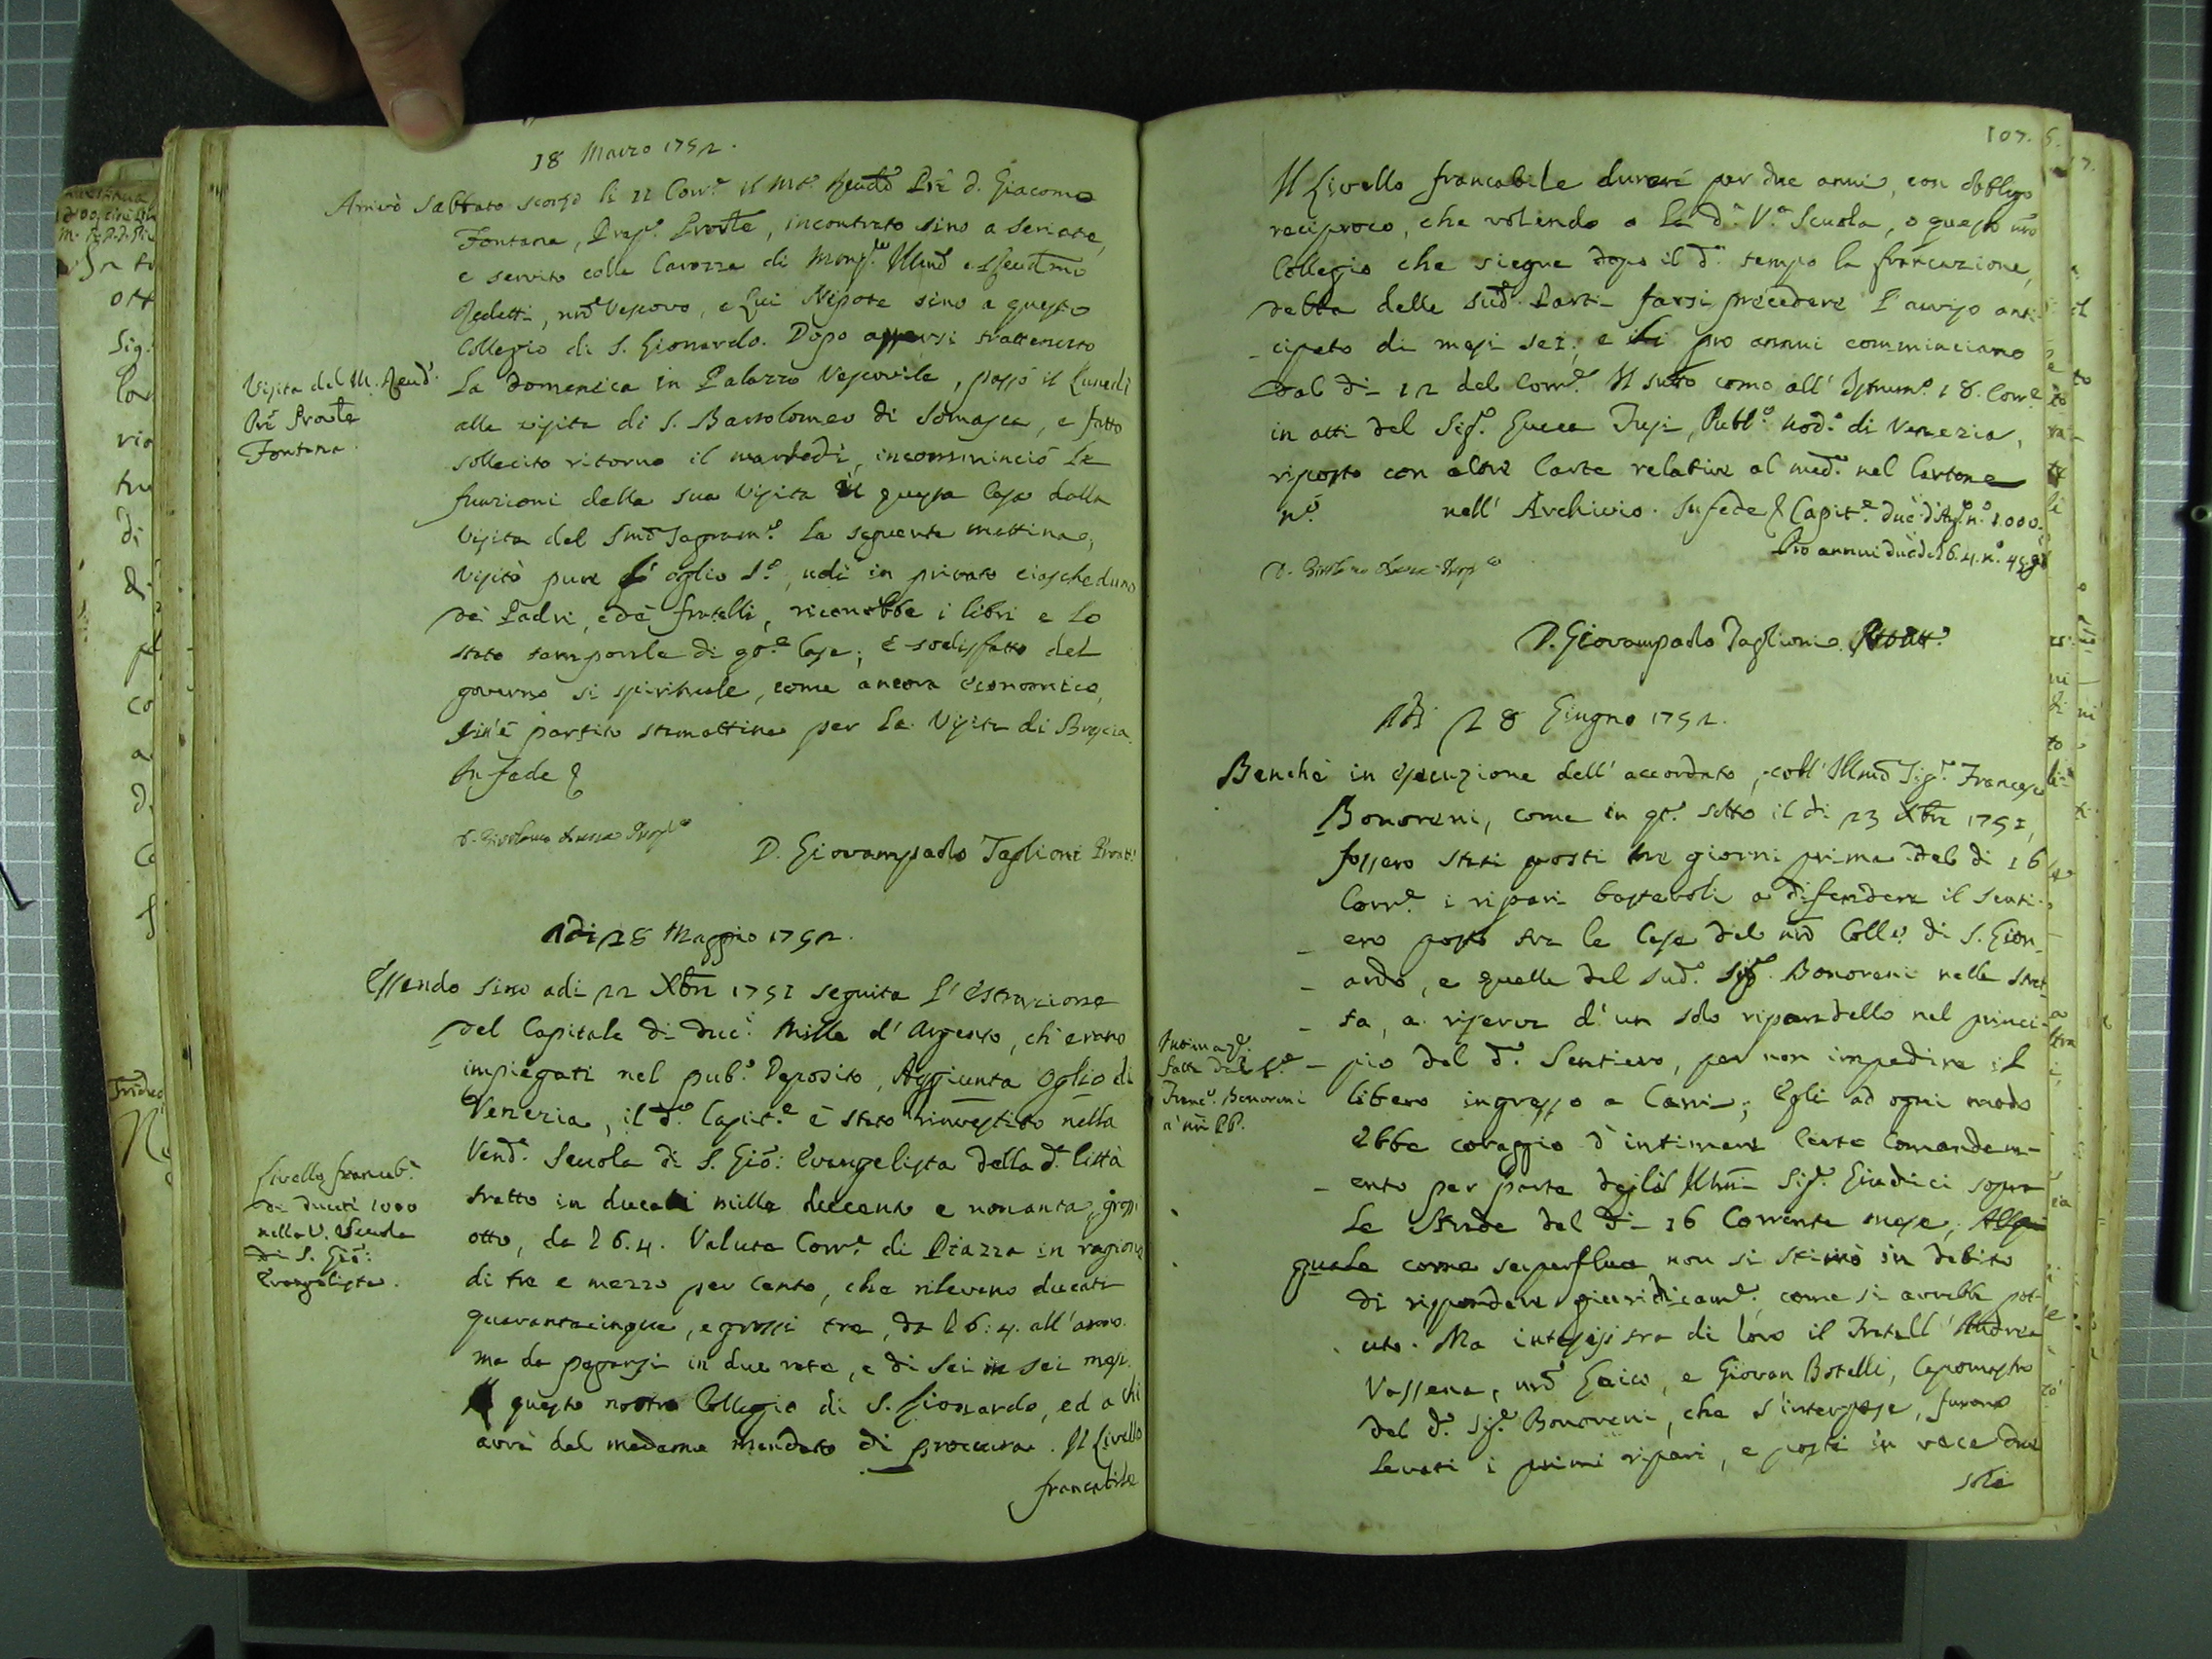 18 Marzo 1752.
Arrivò Sabbato scorso li 11 Corr.e il Mo. Revdo Pre d. Giacomo
Fontana, Prep.o Provle, incontrato sino a Seriate,
e servito colla Carozza di Monsr. Illmo e Revdmo
Redetti, nro Vescovo, e Lui Nipote sino a questo
Collegio di S. Lionardo. Dopo essersi trattenuto
La domenica in Palazzo Vescovile, passò il Lunedì
alla visita di S. Bartolomeo di Somasca, e fatto
sollecito ritorno il martedì, incomminciò le
funzioni della sua Visita di questa Casa dalla
Visita del Smo Sagram.o La seguente mattina,
visitò pure l' oglio So., udì in privato ciascheduno
de' Padri, e de' fratelli, riconobbe i libri e lo
stato temporale di qo.a Casa; e sodisfatto del
governo sì spirituale, come ancora economico,
sin'è partito stamattina per La Visita di Brescia.
In fede &
D. Girolamo Prep.to
D. Giovampaolo Taglioni
Visita del M. Revd.
Pre Provle
Fontana.
Adi 28 Maggio 1752.
Essendo sino adi 22 Xbre 1751 seguita L'estrazione
del Capitale di duc.i Mille d'Argento, ch'erano
impiegati nel pub.o Deposito, Aggiunta oglio di
Venezia, il d.o Capit.e è stato rinvestito nella
Vend.a Scuola di S. Gio: Evangelista della d.a Città
tratto in ducati mille duecento e nonanta, grossi
otto, da L 6.4. Valuta Corr.e di Piazza in ragione
di tre e mezzo per cento, che rilevano ducati
quarantacinque, e grossi tre, da L 6:4. all'anno.
ma da pagarsi in due rate, e di sei in sei mesi.
A questo nostro Collegio di S. Lionardo, ed a chi
avrà dal medemo mandato di procura. Il Livello
francabile
Livello francab.e
di ducati 1000
nella V. Scuola
di S. Gio:
Evangelista.
107.
Il Livello francabile durerà per due anni, con obbligo
reciproco, che volendo o La d.a V.a Scuola, o questo nro
Collegio che siegua dopo il d.o tempo la francazione,
debba delle sud.e Parti farsi precedere L'avviso anti-
-cipato di mesi sei; e li pro annui comminciano
dal dì 12 del Corr.e Il tutto come all' Istrum.o 18. Corr.e
in atti del Sig.r Publ.o Nod.o di Venezia,
riposto con altre Carte relative al med.o nel Cartone
n.o nell' Archivio. In fede & Capit.e duc. d'Arg.o n.o 1000.
Pro annui duc. da L 6.4. n.o 45
D. Girolamo Prep.to
D. Giovampaolo Taglioni
Adi 28 Giugno 1752.
Benchè in esecuzione dell' accordato, coll' Illmo Sig.r Francesco
Bonoreni, come in qto. sotto il dì 23 Xbre 1751,
fossero stati posti tre giorni prima del dì 16
Corr.e i ripari bastevoli a difendere il senti-
-ero posto tra le Case del nro Coll.o di S. Lion-
-ardo, e quelle del sud.o Sig.r Bonoreni nella stret-
-ta, a riserva d'un solo riparedello nel princi-
-pio del d.o Sentiero, per non impedire il
libero ingresso a Carri; Egli ad ogni modo
ebbe coraggio d'intimare Certo Comandam-
-ento per parte degl' Illmi Sig.ri Giudici sopra
Le Strade del dì 16 Corrente mese, Alla
quale come superflua non si stimò in debito
di rispondere giuridicam.e, come si avrebbe pot-
uto. Ma intesisi tra di loro il Fratell' Andrea
Vassena, nro Laico, e Giovan Botelli, Capomastro
del d.o Sig.r Bonoreni, che s'interpose, furono
Levati i primi ripari, e posti in vece due
soli
Intimaz.e
fatta dal S.r
Franc.o Bonoreni
a' nri PP.